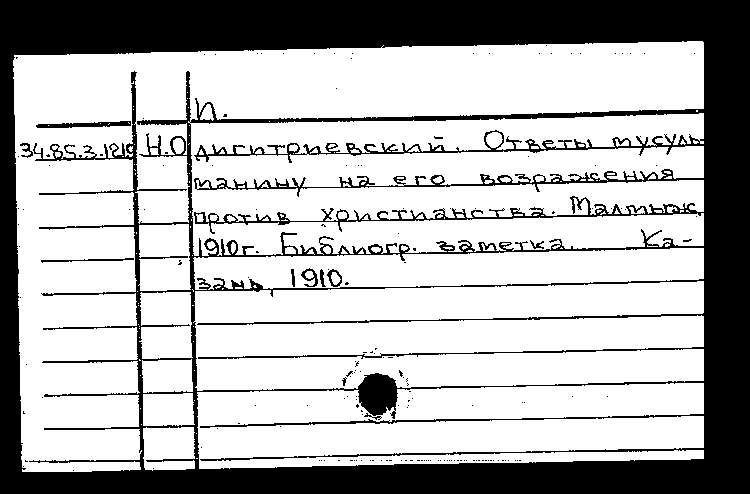 П.
34.85.3.1219 Н.О Дмитриевский. Ответы мусуль-
манину на его возражения
против христианства. Малмыж.
1910г. Библиогр. заметка. Ка-
зань, 1910.